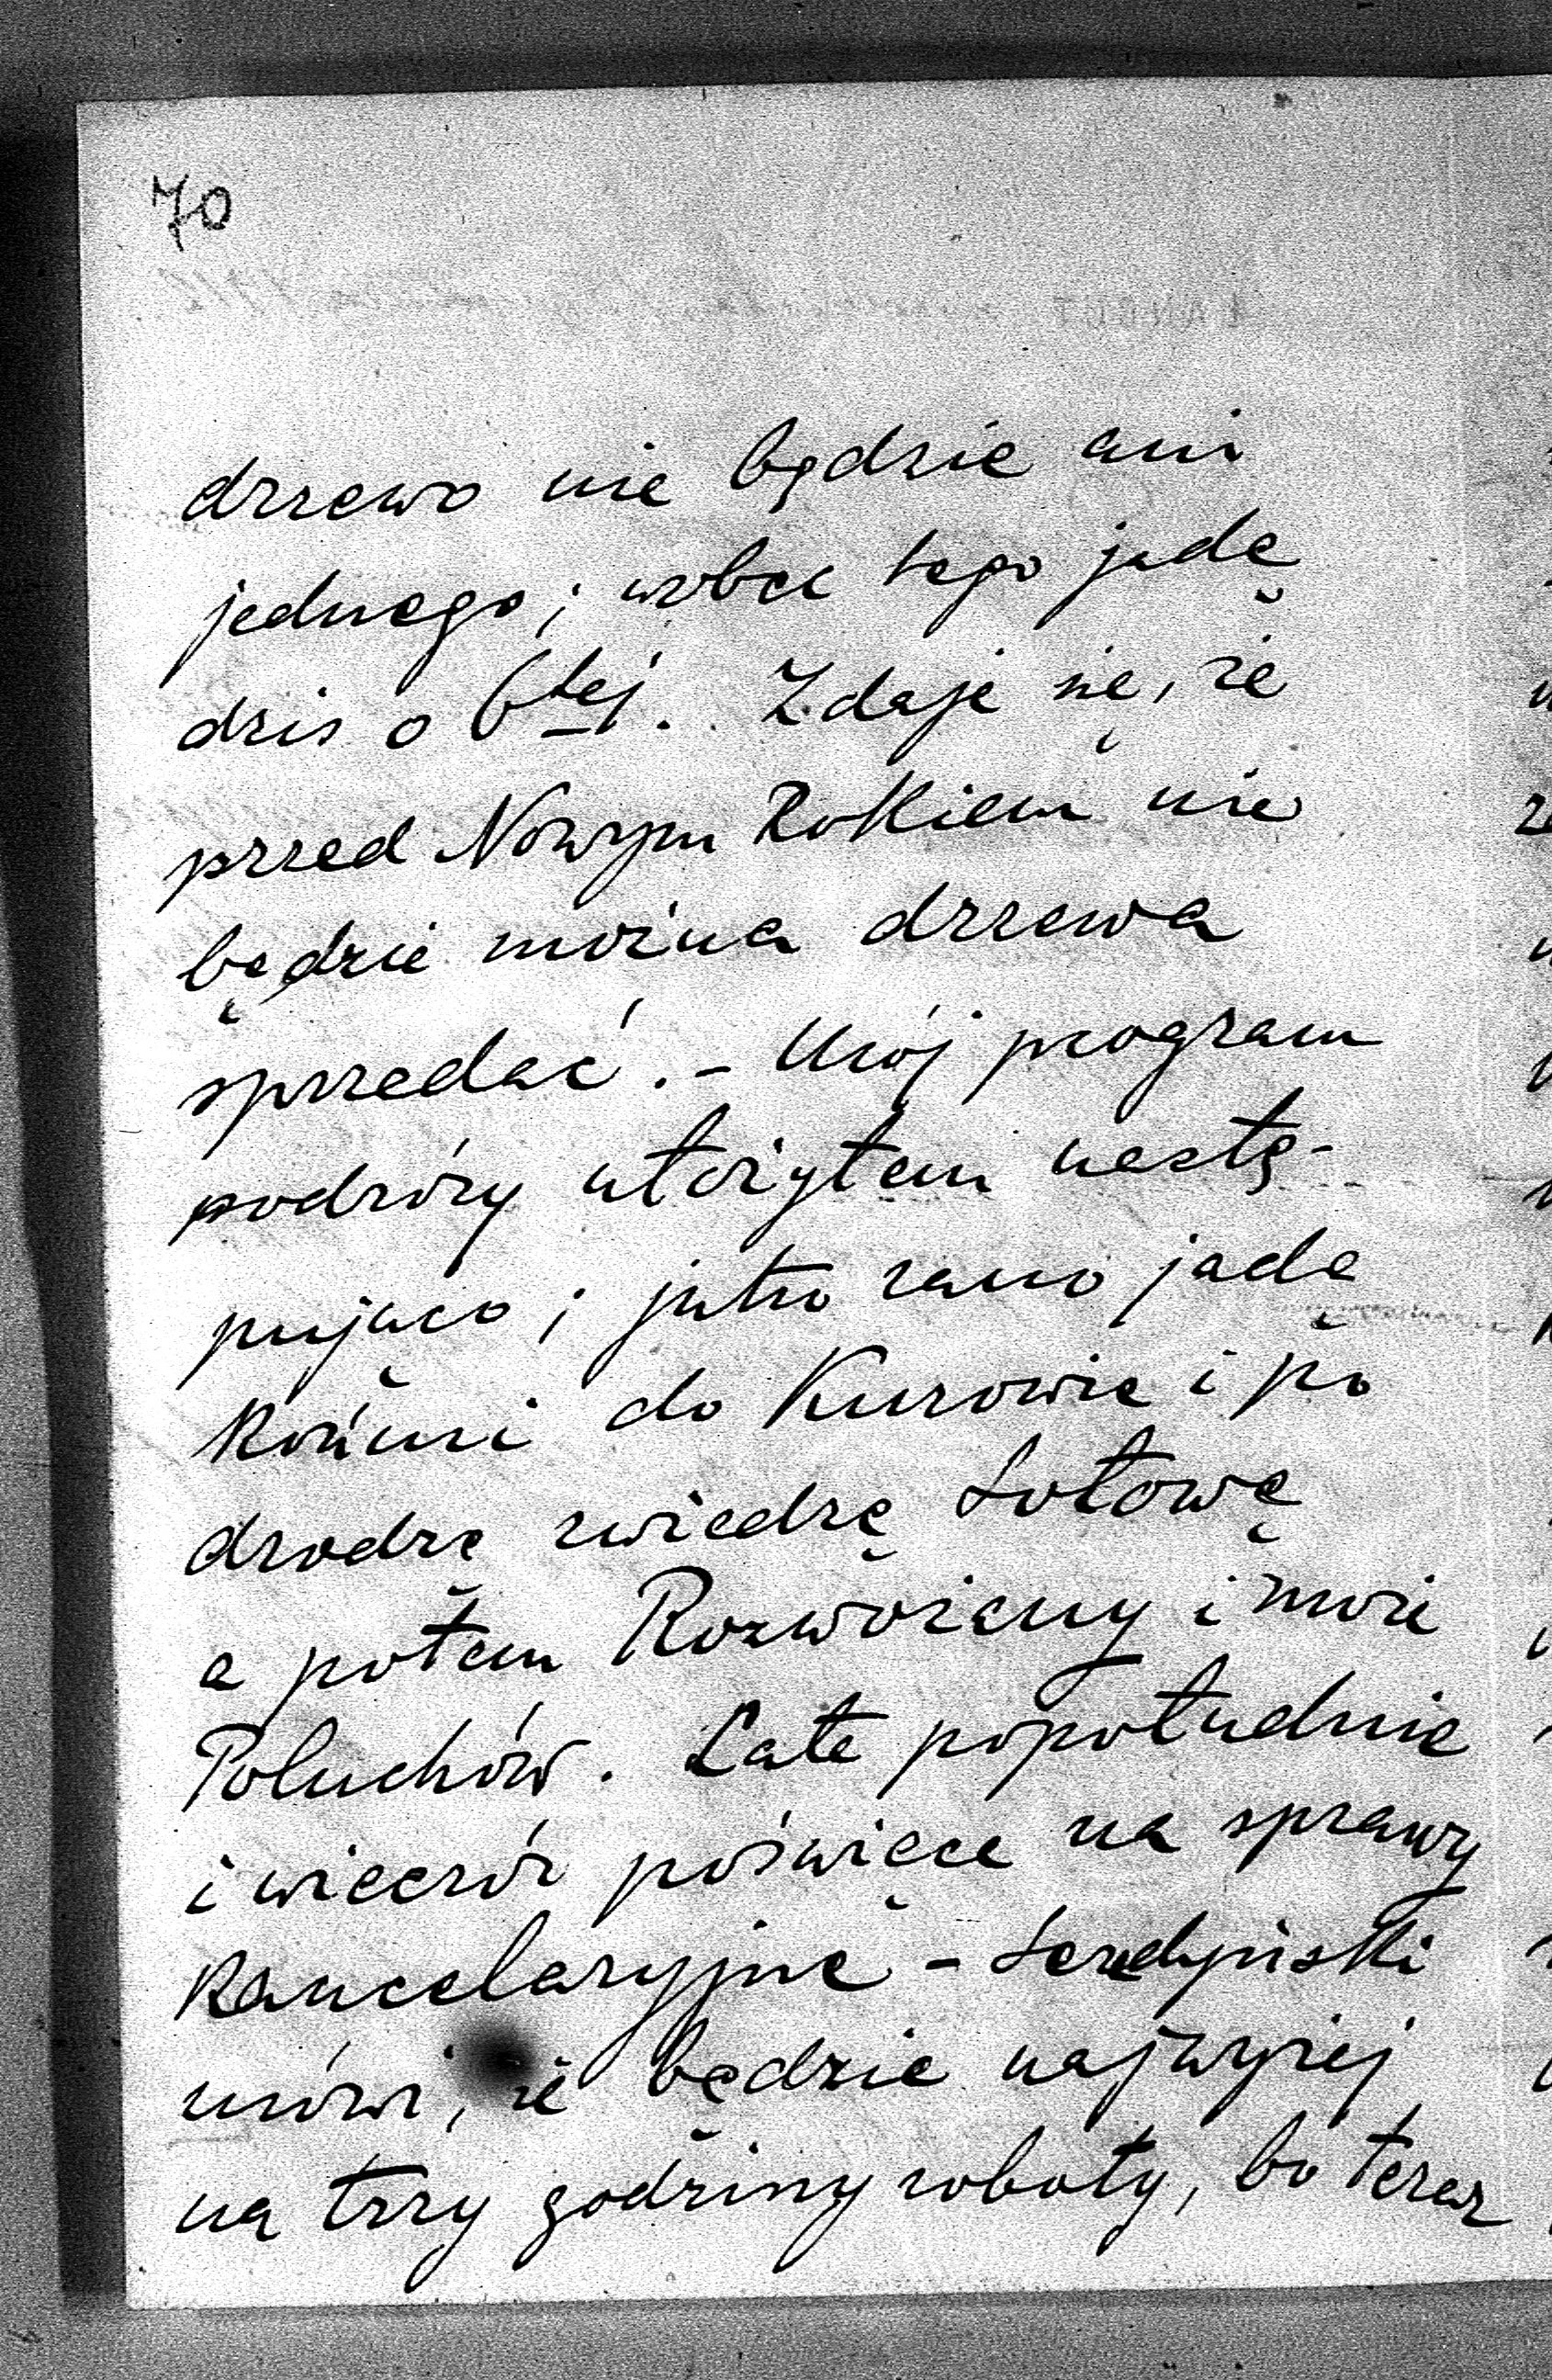 70
drzewo nie będzie ani
jednego; wobec tego jadę
dzis o 6tej. Zdaje się, że
przed Nowym Rokiem nie
będzie można drzewa
sprzedać. - Mój program
podróży ułożyłem nastę-
pująco; jutro rano jadę
Końmi do Kurowic i po
drodze zwiedzę Sołowę
a potem Rozworzany i może
Poluchów. Całe popołudnie
i wieczór poświęcę na sprawy
Kancelaryjne -
mówi, że będzie najwyżej
na trzy godziny roboty, bo teraz